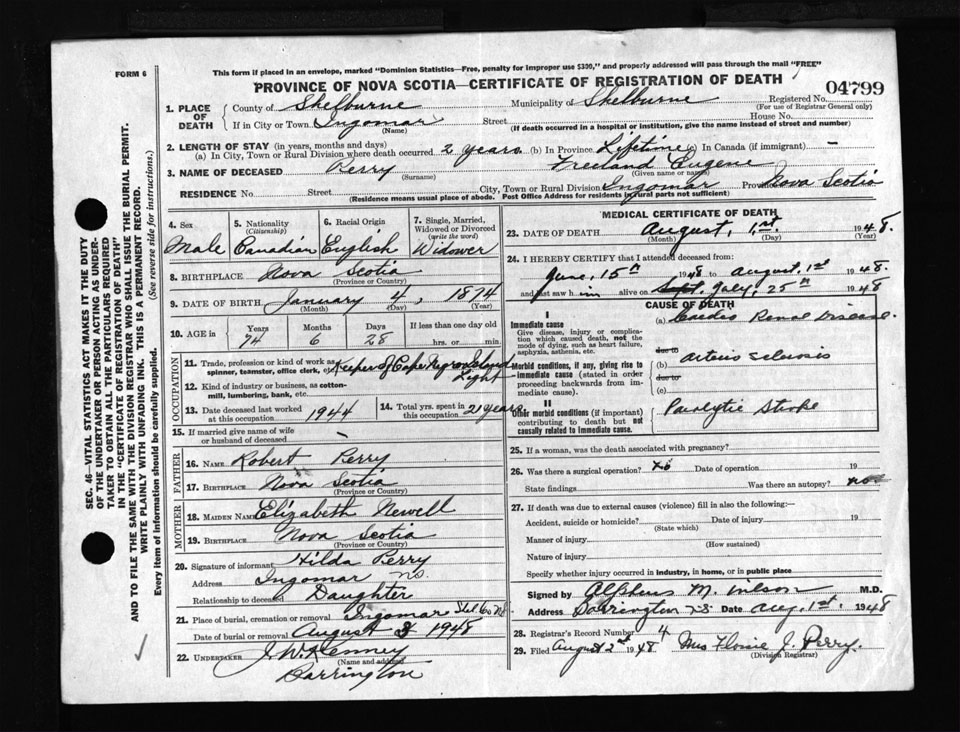 FORM 6
This form if placed in an envelope, marked "Dominion Statistics—Free, penalty for improper use $300," and properly addressed will pass through the mail "FREE"
PROVINCE OF NOVA SCOTIA—CERTIFICATE OF REGISTRATION OF DEATH
04799
1. PLACE OF DEATH County of Shelburne Municipality of Shelburne Registered No.
(For use of Registrar General only)
If in City or Town Ingomar Street House No.
(Name) (If death occurred in a hospital or institution, give the name instead of street and number)
2. LENGTH OF STAY (in years, months and days)
(a) In City, Town or Rural Division where death occurred 2 years (b) In Province Lifetime (c) In Canada (if immigrant) —
3. NAME OF DECEASED Perry Freeland Eugene
(Surname) (Given name or names)
RESIDENCE No Street City, Town or Rural Division Ingomar Province Nova Scotia
(Residence means usual place of abode. Post Office Address for residents in rural parts not sufficient)
4. Sex Male
5. Nationality (Citizenship) Canadian
6. Racial Origin English
7. Single, Married, Widowed or Divorced (write the word) Widower
8. BIRTHPLACE Nova Scotia
(Province or Country)
9. DATE OF BIRTH January 4, 1874
(Month) (Day) (Year)
10. AGE in Years Months Days If less than one day old
74 6 28 hrs. or min.
OCCUPATION
11. Trade, profession or kind of work as spinner, teamster, office clerk, etc. Keeper of Cape Negro Island Light
12. Kind of industry or business, as cotton-mill, lumbering, bank, etc.
13. Date deceased last worked at this occupation 1944
14. Total yrs. spent in this occupation 21 years
15. If married give name of wife or husband of deceased —
FATHER
16. NAME Robert Perry
17. BIRTHPLACE Nova Scotia
(Province or Country)
MOTHER
18. MAIDEN NAME Elizabeth Newell
19. BIRTHPLACE Nova Scotia
(Province or Country)
20. Signature of informant Hilda Perry
Address Ingomar NS.
Relationship to deceased Daughter
21. Place of burial, cremation or removal Ingomar Shel Co NS.
Date of burial or removal August 3 1948
22. UNDERTAKER J. W. Kenney
(Name and address)
Barrington
MEDICAL CERTIFICATE OF DEATH
23. DATE OF DEATH August, 1st. 1948.
(Month) (Day) (Year)
24. I HEREBY CERTIFY that I attended deceased from:
June, 15th 1948 to August, 1st 1948.
and last saw him alive on Sept. July, 25th 1948
CAUSE OF DEATH
I
Immediate cause (a) Cardio Renal Disease.
Give disease, injury or complication which caused death, not the mode of dying, such as heart failure, asphyxia, asthenia, etc.
due to
Morbid conditions, if any, giving rise to immediate cause (stated in order proceeding backwards from immediate cause). (b) Arterio sclerosis
due to
(c)
II
Other morbid conditions (if important) contributing to death but not causally related to immediate cause. Paralytic Stroke
25. If a woman, was the death associated with pregnancy?
26. Was there a surgical operation? No Date of operation 19
State findings Was there an autopsy? no
27. If death was due to external causes (violence) fill in also the following:—
Accident, suicide or homicide? Date of injury 19
(State which)
Manner of injury
(How sustained)
Nature of injury
Specify whether injury occurred in industry, in home, or in public place
Signed by Alpheus M. Wilson M.D.
Address Barrington NS. Date Aug. 1st. 1948
28. Registrar's Record Number 4
29. Filed August 2nd 1948 Mrs Flossie J. Perry.
(Division Registrar)
SEC. 46—VITAL STATISTICS ACT MAKES IT THE DUTY
OF THE UNDERTAKER OR PERSON ACTING AS UNDER-
TAKER TO OBTAIN ALL THE PARTICULARS REQUIRED
IN THE "CERTIFICATE OF REGISTRATION OF DEATH"
AND TO FILE THE SAME WITH THE DIVISION REGISTRAR WHO SHALL ISSUE THE BURIAL PERMIT.
WRITE PLAINLY WITH UNFADING INK. THIS IS A PERMANENT RECORD.
Every item of information should be carefully supplied. (See reverse side for instructions.)